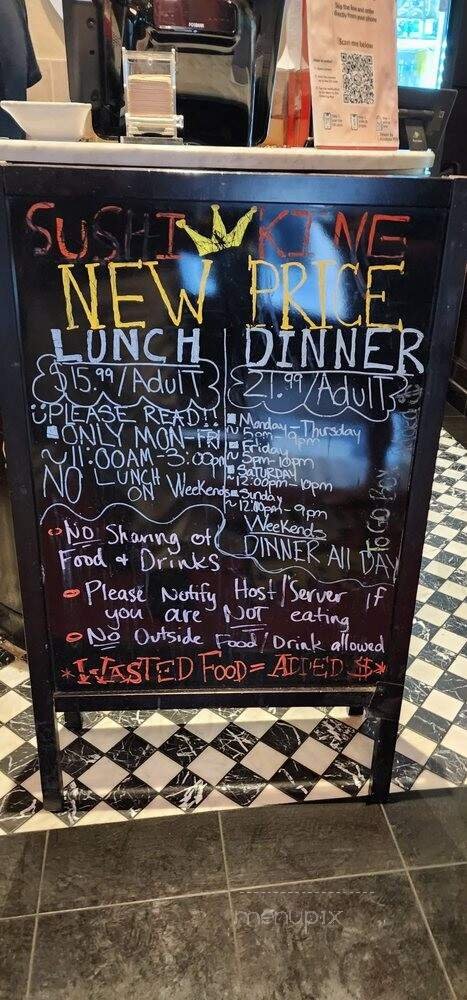 Skip the line and order
directly from your phone
Scan me below
SUSHI KING
NEW PRICE
LUNCH
$15.99/Adult
PLEASE READ!!
ONLY MON-FRI
~11:00AM-3:00pm
NO LUNCH
ON Weekends
DINNER
21.99/Adult
Monday-Thursday
~ 3pm-9pm
Friday
~ 3pm-10pm
SATURDAY
~ 12:00pm-10pm
Sunday
~ 12:00pm-9pm
Weekends
DINNER All DAY
To Go Box
NO Sharing of
Food & Drinks
Please Notify Host/Server if
you are NOT eating
No Outside Food/Drink allowed
*WASTED FOOD = ADDED $*
menupix